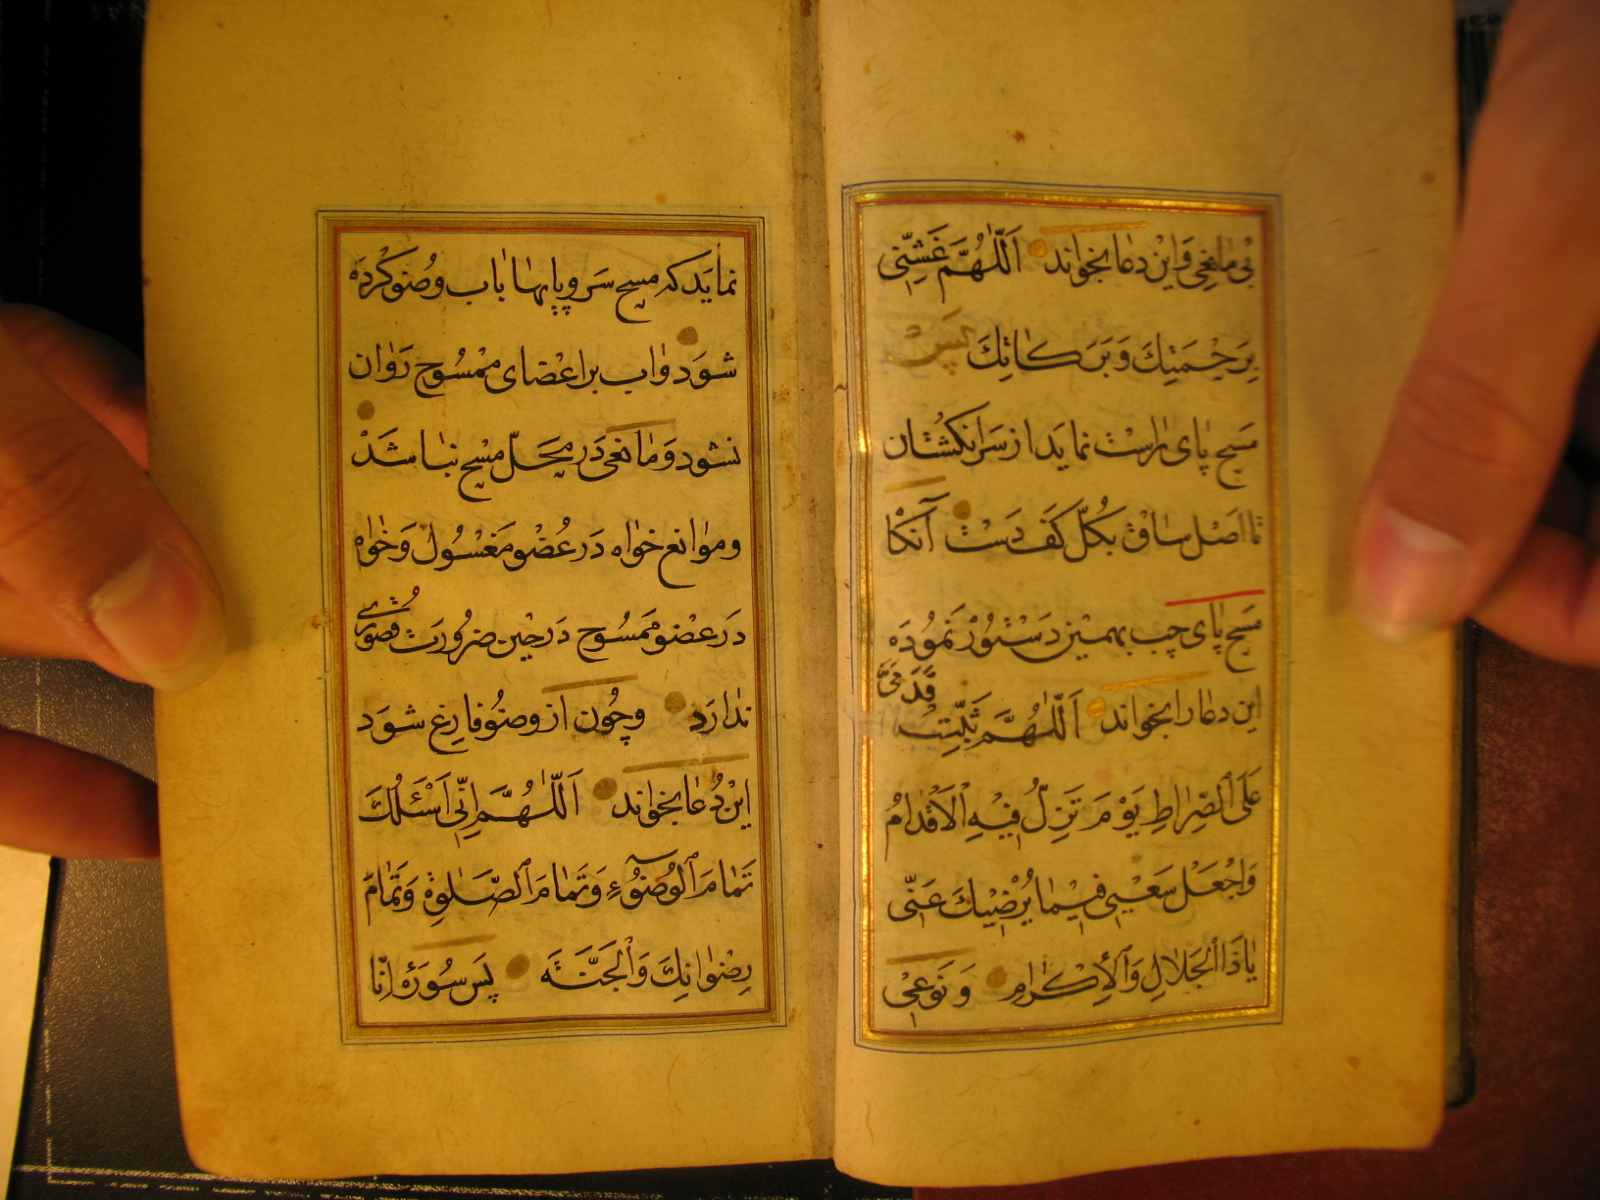 بی مانعی وَاین دعا بخواند اَللّٰهُمَّ غَشِّنِی
بِرَحْمَتِكَ وَبَرَكَاتِكَ پَسْ
مَسح پای رٰاسْت نماید از سَر انكشتان
تا اصْل ساق بكُلّ كَف دَسْت آنكا
مَسح پای چپ بهمین دَسْتوُرْ نموُدَه
این دعا را بخواند اَللّٰهُمَّ ثَبِّتْ قَدَمَیَّ
عَلَی الصِّرَاطِ یَوْمَ تَزِلُّ فیٖهِ الْاَقْدٰامُ
وَاجْعَلْ سَعْیٖی فیٖمٰا یُرْضٖیكَ عَنّٖی
یٰا ذَا الْجَلالِ وَالْاِكْرٰامِ وَ نَوعیٖ
نمٰایَد كه مسح سَر و پایهٰا بٰاب وضُو كرْدَه
شوَد وٰاب بر اعْضٰای ممْسُوح رَوٰان
نشود وَمٰانعی دَر محَلّ مسْح نبٰاشَدْ
وموٰانع خوٰاه دَر عُضْو مَغْسُولْ وَخوٰاه
دَر عضْو ممَسُوح دَر حیْن ضروُرَت قصُوری
ندٰارَد وچُون از وضُو فارِغ شوَد
ایْن دُعٰا بخوٰاند اَللّٰهُمَّ اِنّیٖ اَسْئَلُكَ
تَمٰامَ الْوُضُوٓءِ وَتَمٰامَ الصَّلٰوةِ وَتَمٰامَ
رِضْوٰانِكَ وَالْجَنَّةَ پَس سُورَهٔ اِنّا